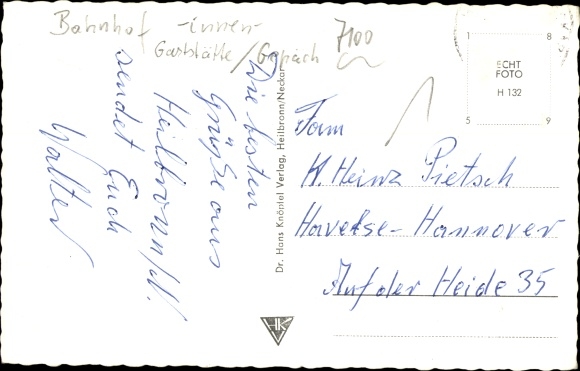 Bahnhof -innen-
Gaststätte / Gepäck
7100
Die besten
Grüße aus
Heilbronn/N.
sendet Euch
Walter
Dr. Hans Knöntel Verlag, Heilbronn/Neckar
1 8
ECHT
FOTO
H 132
5 9
Fam
K. Heinz Pietsch
Havelse-Hannover
Auf der Heide 35
HK